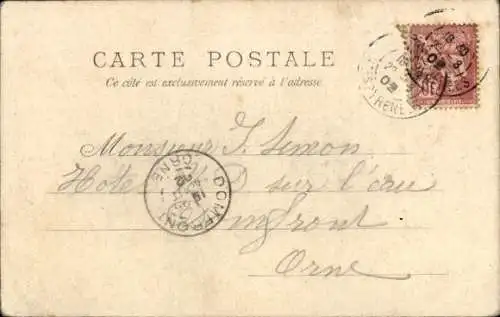 CARTE POSTALE
Ce côté est exclusivement réservé à l'adresse
Monsieur J. Simon
Hotel sur l'eau
Domfront
Orne
DOMFRONT
ORNE
03